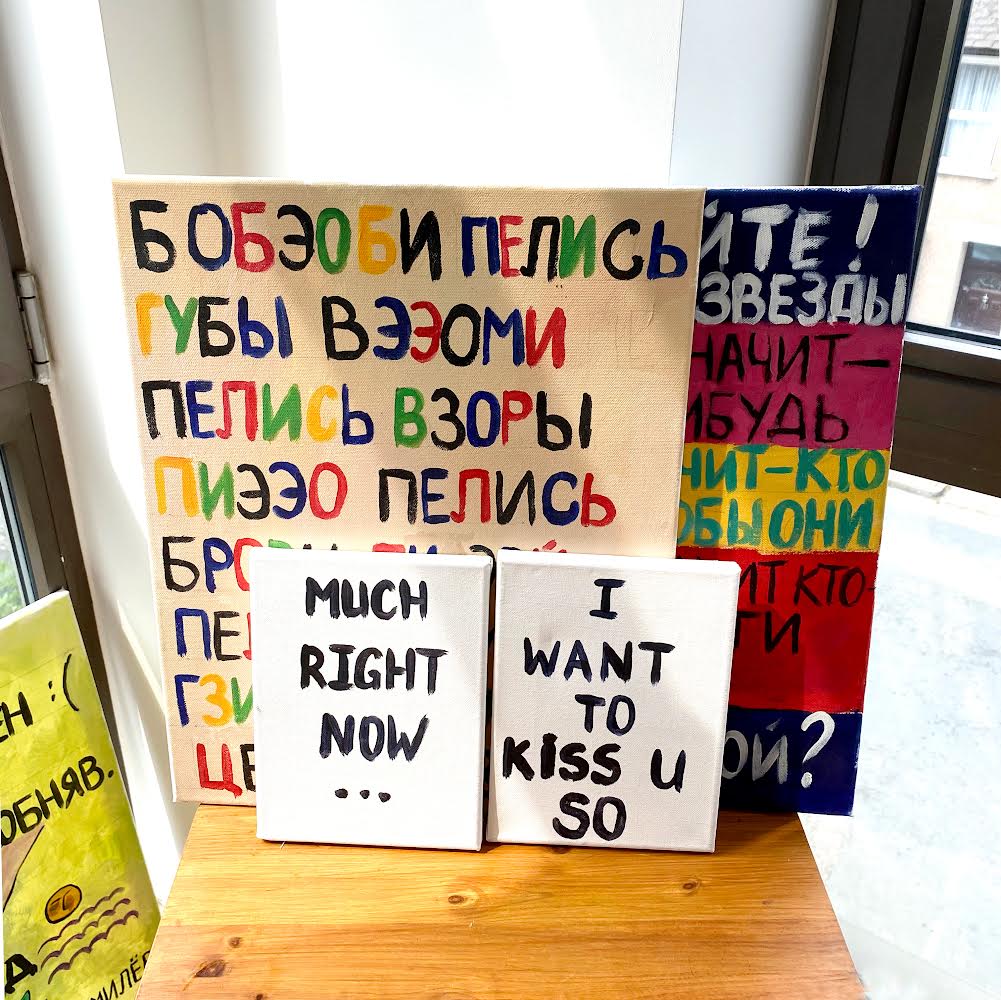 БОБЭОБИ ПЕЛИСЬ
ГУБЫ ВЭЭОМИ
ПЕЛИСЬ ВЗОРЫ
ПИЭЭО ПЕЛИСЬ
ЙТЕ!
ЗВЕЗДЫ
НАЧИТ—
ИБУДЬ
ЧИТ-КТО
ОБЫ ОНИ
ИТ КТО-
ТИ
ОЙ?
MUCH
RIGHT
NOW
...
I
WANT
TO
KISS U
SO
ЕН :(
ОБНЯВ.